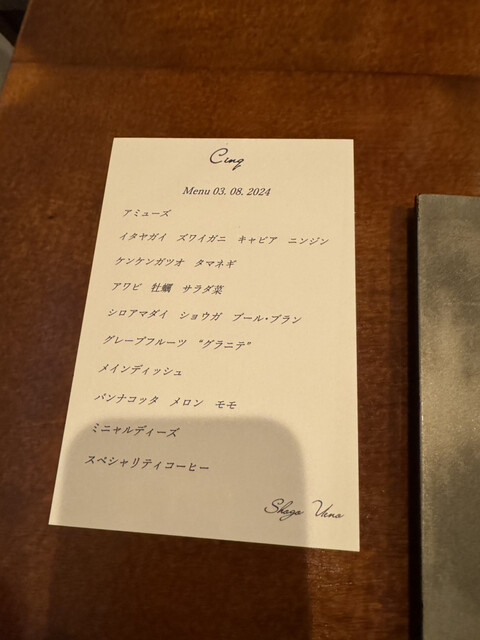 Cinq
Menu 03. 08. 2024
アミューズ
イタヤガイ　ズワイガニ　キャビア　ニンジン
ケンケンガツオ　タマネギ
アワビ　牡蠣　サラダ菜
シロアマダイ　ショウガ　ブール・ブラン
グレープフルーツ　"グラニテ"
メインディッシュ
パンナコッタ　メロン　モモ
ミニャルディーズ
スペシャリティコーヒー
Shogo Ueno